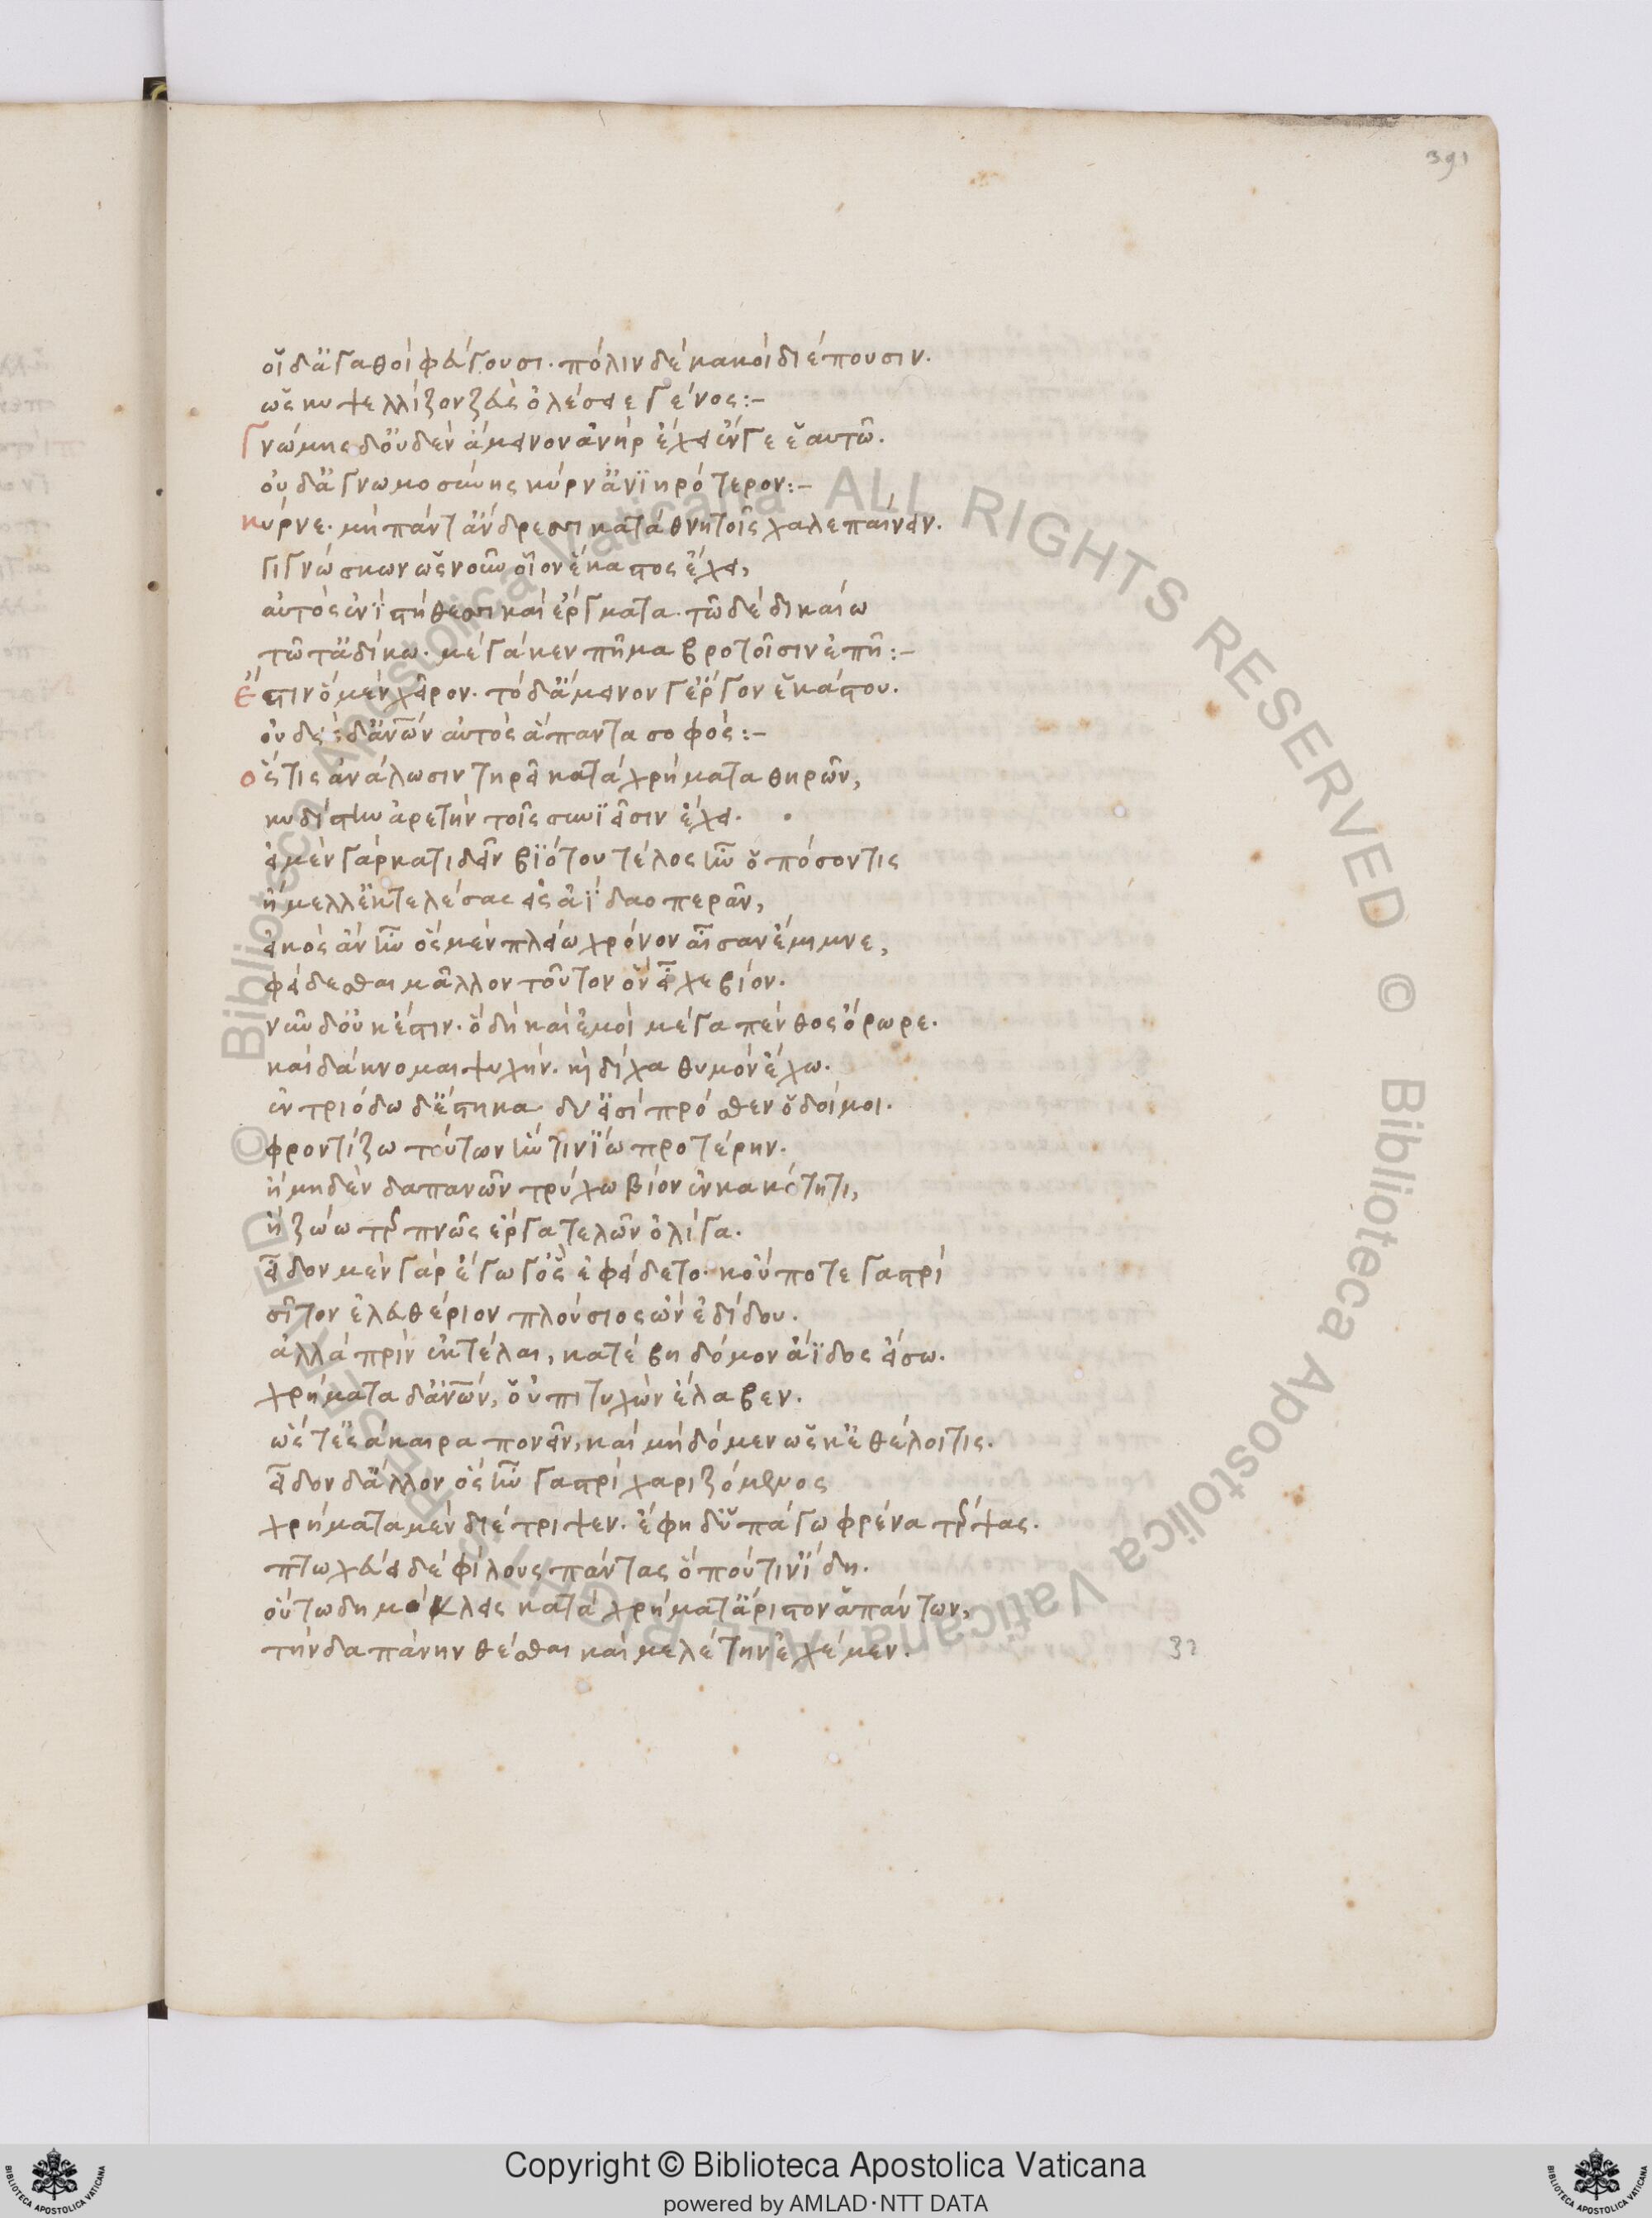 391
οἵ δ' ἀγαθοὶ φεύγουσι. πόλιν δὲ κακοὶ διέπουσιν.
ὡς κυψελλίζον ζεὺς ὀλέσειε γένος:-
Γνώμης δ' οὐδὲν ἄμεινον ἀνὴρ ἔχει ἔν γε ἑαυτῶ.
οὐδ' ἀγνωμοσύνης κύρν' ἀνιηρότερον:-
κύρνε. μὴ πάντ' ἄνδρεσσι κατὰ θνητοῖς χαλεπαίνειν.
γιγνώσκων ὡς νοῦν οἷον ἕκαστος ἔχει,
αὐτὸς ἐνὶ στήθεσσι καὶ ἔργματα. τῶ δὲ δικαίω
τῶ τ' ἀδίκω. μέγα κεν πῆμα βροτοῖσιν ἐπῆ:-
Ἔστιν ὁ μὲν χεῖρον. τὸ δ' ἄμεινον γ' ἔργον ἑκάστου.
οὐδεὶς δ' ἀνθρώπων αὐτὸς ἅπαντα σοφός:-
ὅστις ἀνάλωσιν τηρεῖ κατὰ χρήματα θηρῶν,
κυδίστην ἀρετὴν τοῖς συνιεῖσιν ἔχει.
εἰ μὲν γὰρ κατιδεῖν βιότου τέλος ἦν ὁπόσον τις
ἤμελλ' ἐκτελέσας εἰς ἀΐδαο περᾶν,
εἰκὸς ἂν ἦν ὃς μὲν πλείω χρόνον αἶσαν ἔμιμνε,
φείδεσθαι μᾶλλον τοῦτον ὃν εἶχε βίον.
νῦν δ' οὐκ ἔστιν. ὃ δὴ καὶ ἐμοὶ μέγα πένθος ὄρωρε.
καὶ δάκνομαι ψυχήν. κὴ δίχα θυμὸν ἔχω.
ἐν τριόδω δ' ἕστηκα. δύ' εἰσὶ πρόσθεν ὁδοί μοι.
φροντίζω τούτων ἥν τιν' ἴω προτέρην.
ἢ μηδὲν δαπανῶν τρύχω βίον ἐν κακότητι,
ἢ ζώω τερπνῶς ἔργα τελῶν ὀλίγα.
εἶδον μὲν γὰρ ἔγωγ' ὃς ἐφείδετο. κοὔποτε γαστρὶ
σῖτον ἐλευθέριον πλούσιος ὢν ἐδίδου.
ἀλλὰ πρὶν ἐκτέλσαι, κατέβη δόμον ἄϊδος εἴσω.
χρήματα δ' ἀνθρώπων, οὑπιτυχὼν ἔλαβεν.
ὥστ' ἐς ἄκαιρα πονεῖν, καὶ μὴ δόμεν ὡς κ' ἐθέλοι τις.
εἶδον δ' ἄλλον ὃς ἦν γαστρὶ χαριζόμενος
χρήματα μὲν διέτριψεν. ἔφη δ' ὑπάγω φρένα τέρψας.
πτωχεύει δὲ φίλους πάντας ὅπου τιν' ἴδη.
οὕτω δημόκλεις κατὰ χρήματ' ἄριστον ἁπάντων,
τὴν δαπάνην θέσθαι καὶ μελέτην ἐχέμεν.
32
© Biblioteca Apostolica Vaticana ALL RIGHTS RESERVED © Biblioteca Apostolica Vaticana ALL RIGHTS RESERVED
Copyright © Biblioteca Apostolica Vaticana
powered by AMLAD·NTT DATA